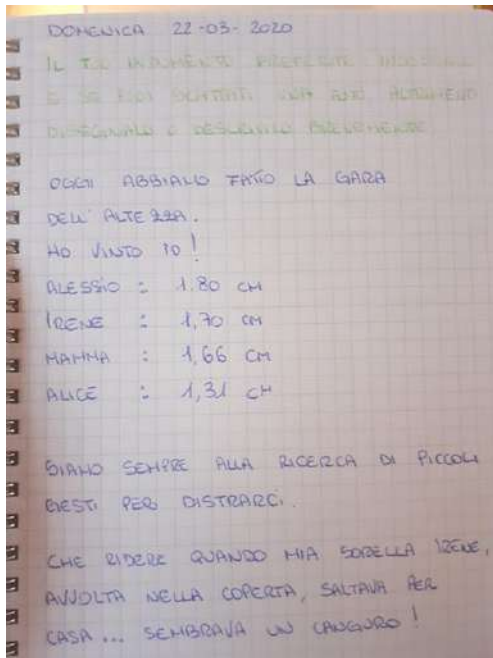 DOMENICA 22-03-2020
IL TUO INDUMENTO PREFERITO
E SE
DISEGNALO E DESCRIVILO BREVEMENTE
OGGI ABBIAMO FATTO LA GARA
DELL'ALTEZZA.
HO VINTO IO!
ALESSIO : 1.80 CM
IRENE : 1,70 CM
MAMMA : 1,66 CM
ALICE : 1,31 CM
SIAMO SEMPRE ALLA RICERCA DI PICCOLI
GESTI PER DISTRARCI.
CHE RIDERE QUANDO MIA SORELLA IRENE,
AVVOLTA NELLA COPERTA, SALTAVA PER
CASA... SEMBRAVA UN CANGURO!